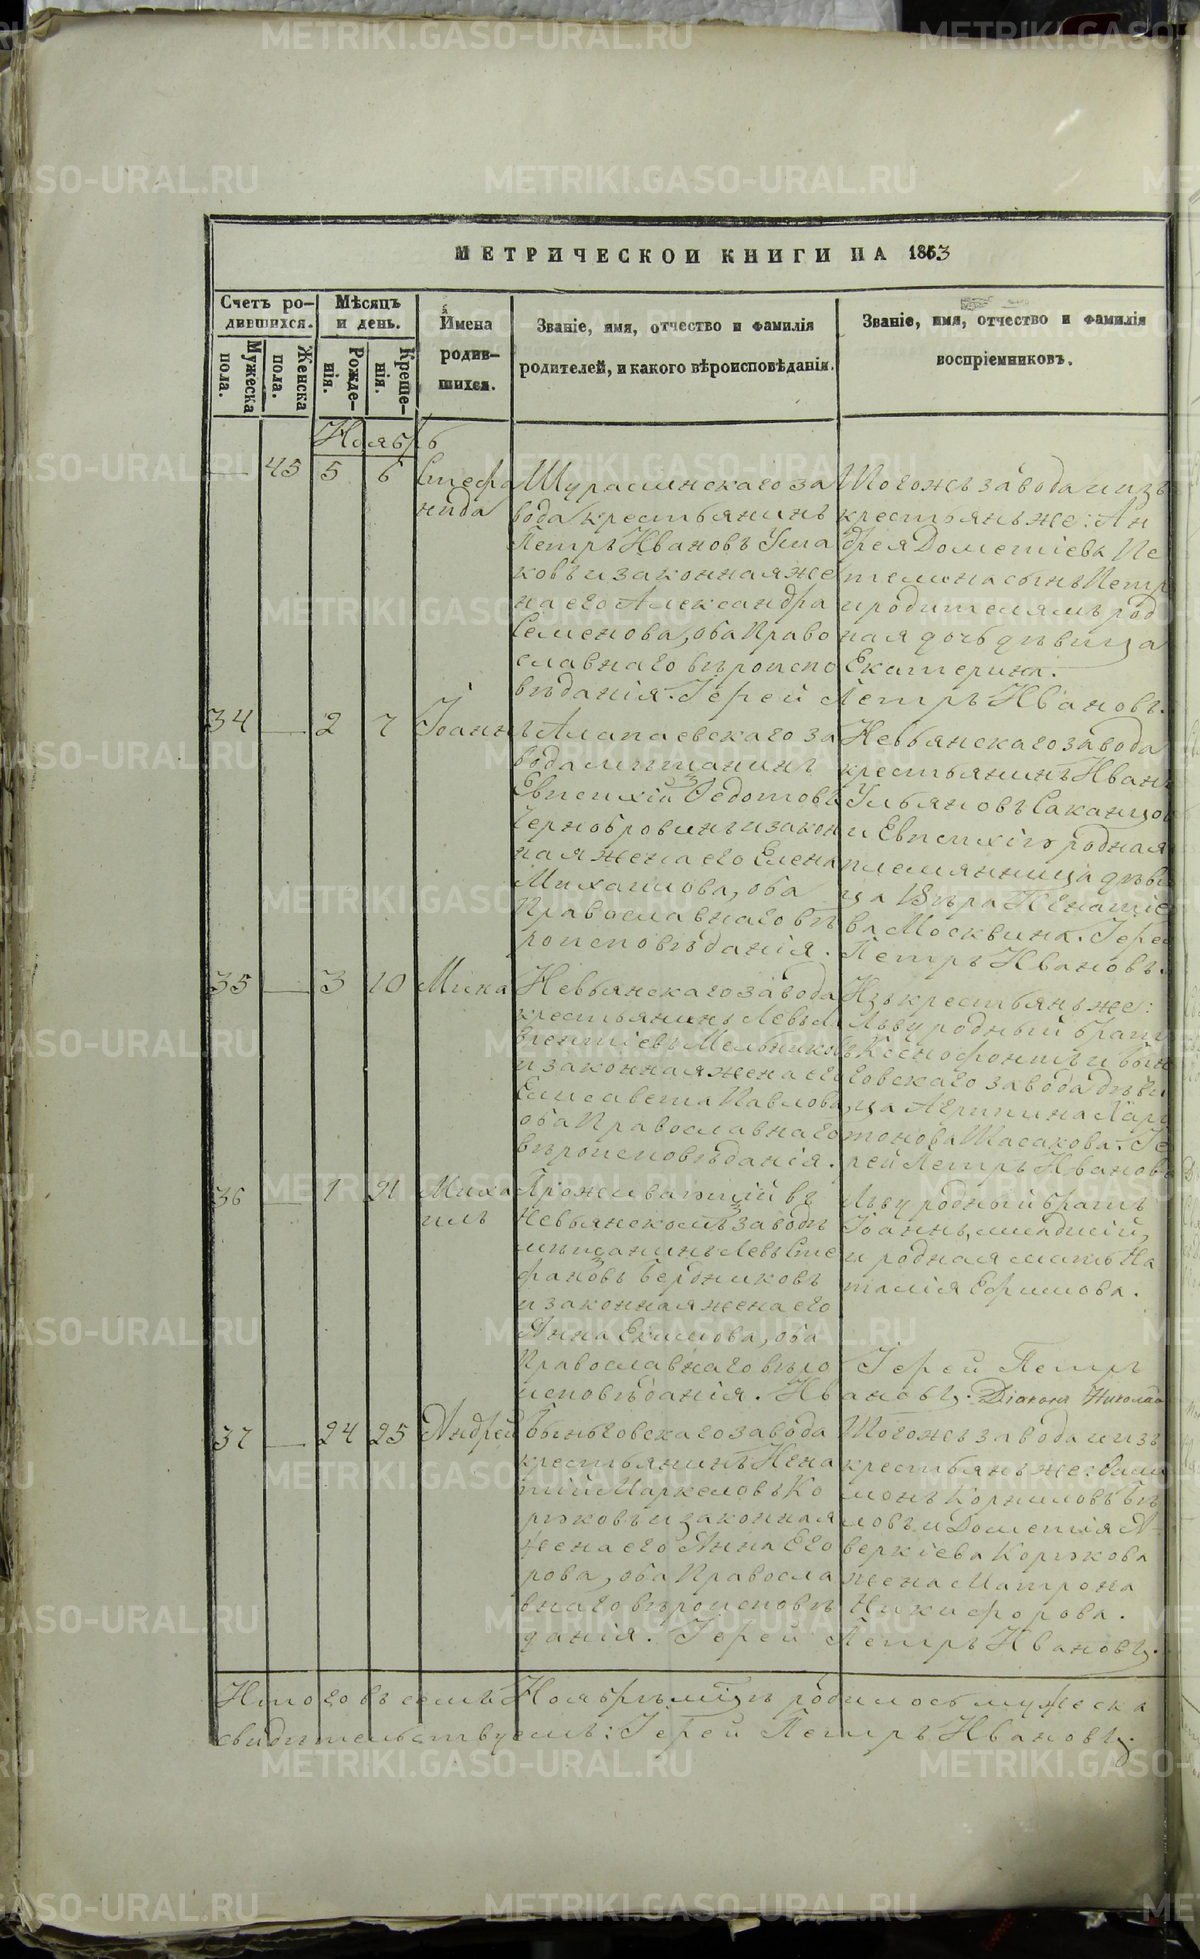 МЕТРИЧЕСКОЙ КНИГИ НА 1863
Счетъ ро-
дившихся.
Мужеска
пола.
Женска
пола.
Мѣсяцъ
и день.
Рожде-
нія.
Креще-
нія.
Имена
родив-
шихся.
Званіе, имя, отчество и фамилія
родителей, и какого вѣроисповѣданія.
Званіе, имя, отчество и фамилія
воспріемниковъ.
Ноябрь
45 5 6 Стефа
нида
Шуралинскаго за
вода крестьянинъ
Петръ Ивановъ Уша
ковъ и законная же
на его Александра
Семенова, оба Право
славнаго вѣроиспо
вѣданія. Іерей Петръ Ивановъ.
Тогожъ завода и изъ
крестьянъ же: Ан
дрея Дометіева Пе
телина сынъ Петръ
и родителямъ род
ная дочь дѣвица
Екатерина.
34 2 7 Іоаннъ
Алапаевскаго за
вода мѣщанинъ
Евпсихій Федотовъ
Чернобровинъ и закон
ная жена его Елена
Михаилова, оба
Православнаго вѣ
роисповѣданія.
Невьянскаго завода
крестьянинъ Иванъ
Ульяновъ Саканцовъ
и Евпсихію родная
племянница дѣви
ца Вѣра Игнатіе
ва Москвина. Іерей
Петръ Ивановъ.
35 3 10 Мина
Невьянскаго завода
крестьянинъ Левъ Ла
врентіевъ Мельниковъ
и законная жена его
Елисавета Павлова,
оба Православнаго
вѣроисповѣданія.
Изъ крестьянъ же:
Льву родный братъ
Ксенофонтъ и Бынь
говскаго завода дѣви
ца Агрипина Хари
тонова Шасакова. Іе
рей Петръ Ивановъ
36 1 21 Миха
илъ
Проживающій въ
Невьянскомъ заводѣ
мѣщанинъ Левъ Сте
фановъ Бердниковъ
и законная жена его
Анна Екимова, оба
Православнаго вѣро
исповѣданія.
Льву родной братъ
Іоаннъ, младшій,
и родная мать На
талія Ефимова.
Іерей Петръ
Ивановъ. Діаконъ Николай
37 24 25 Андрей
Быньговскаго завода
крестьянинъ Игна
тій Маркеловъ Ко
ряковъ и законная
жена его Анна Его
рова, оба Правосла
внаго вѣроисповѣ
данія. Іерей Петръ Ивановъ.
Тогожъ завода и изъ
крестьянъ же: Фили
монъ Корниловъ Бѣ
ловъ и Дометія А
веркіева Корякова
жена Матрона
Никифорова.
Итого въ семъ Ноябрѣ мцѣ родилось мужеска
свидѣтельствуемъ: Іерей Петръ Ивановъ.